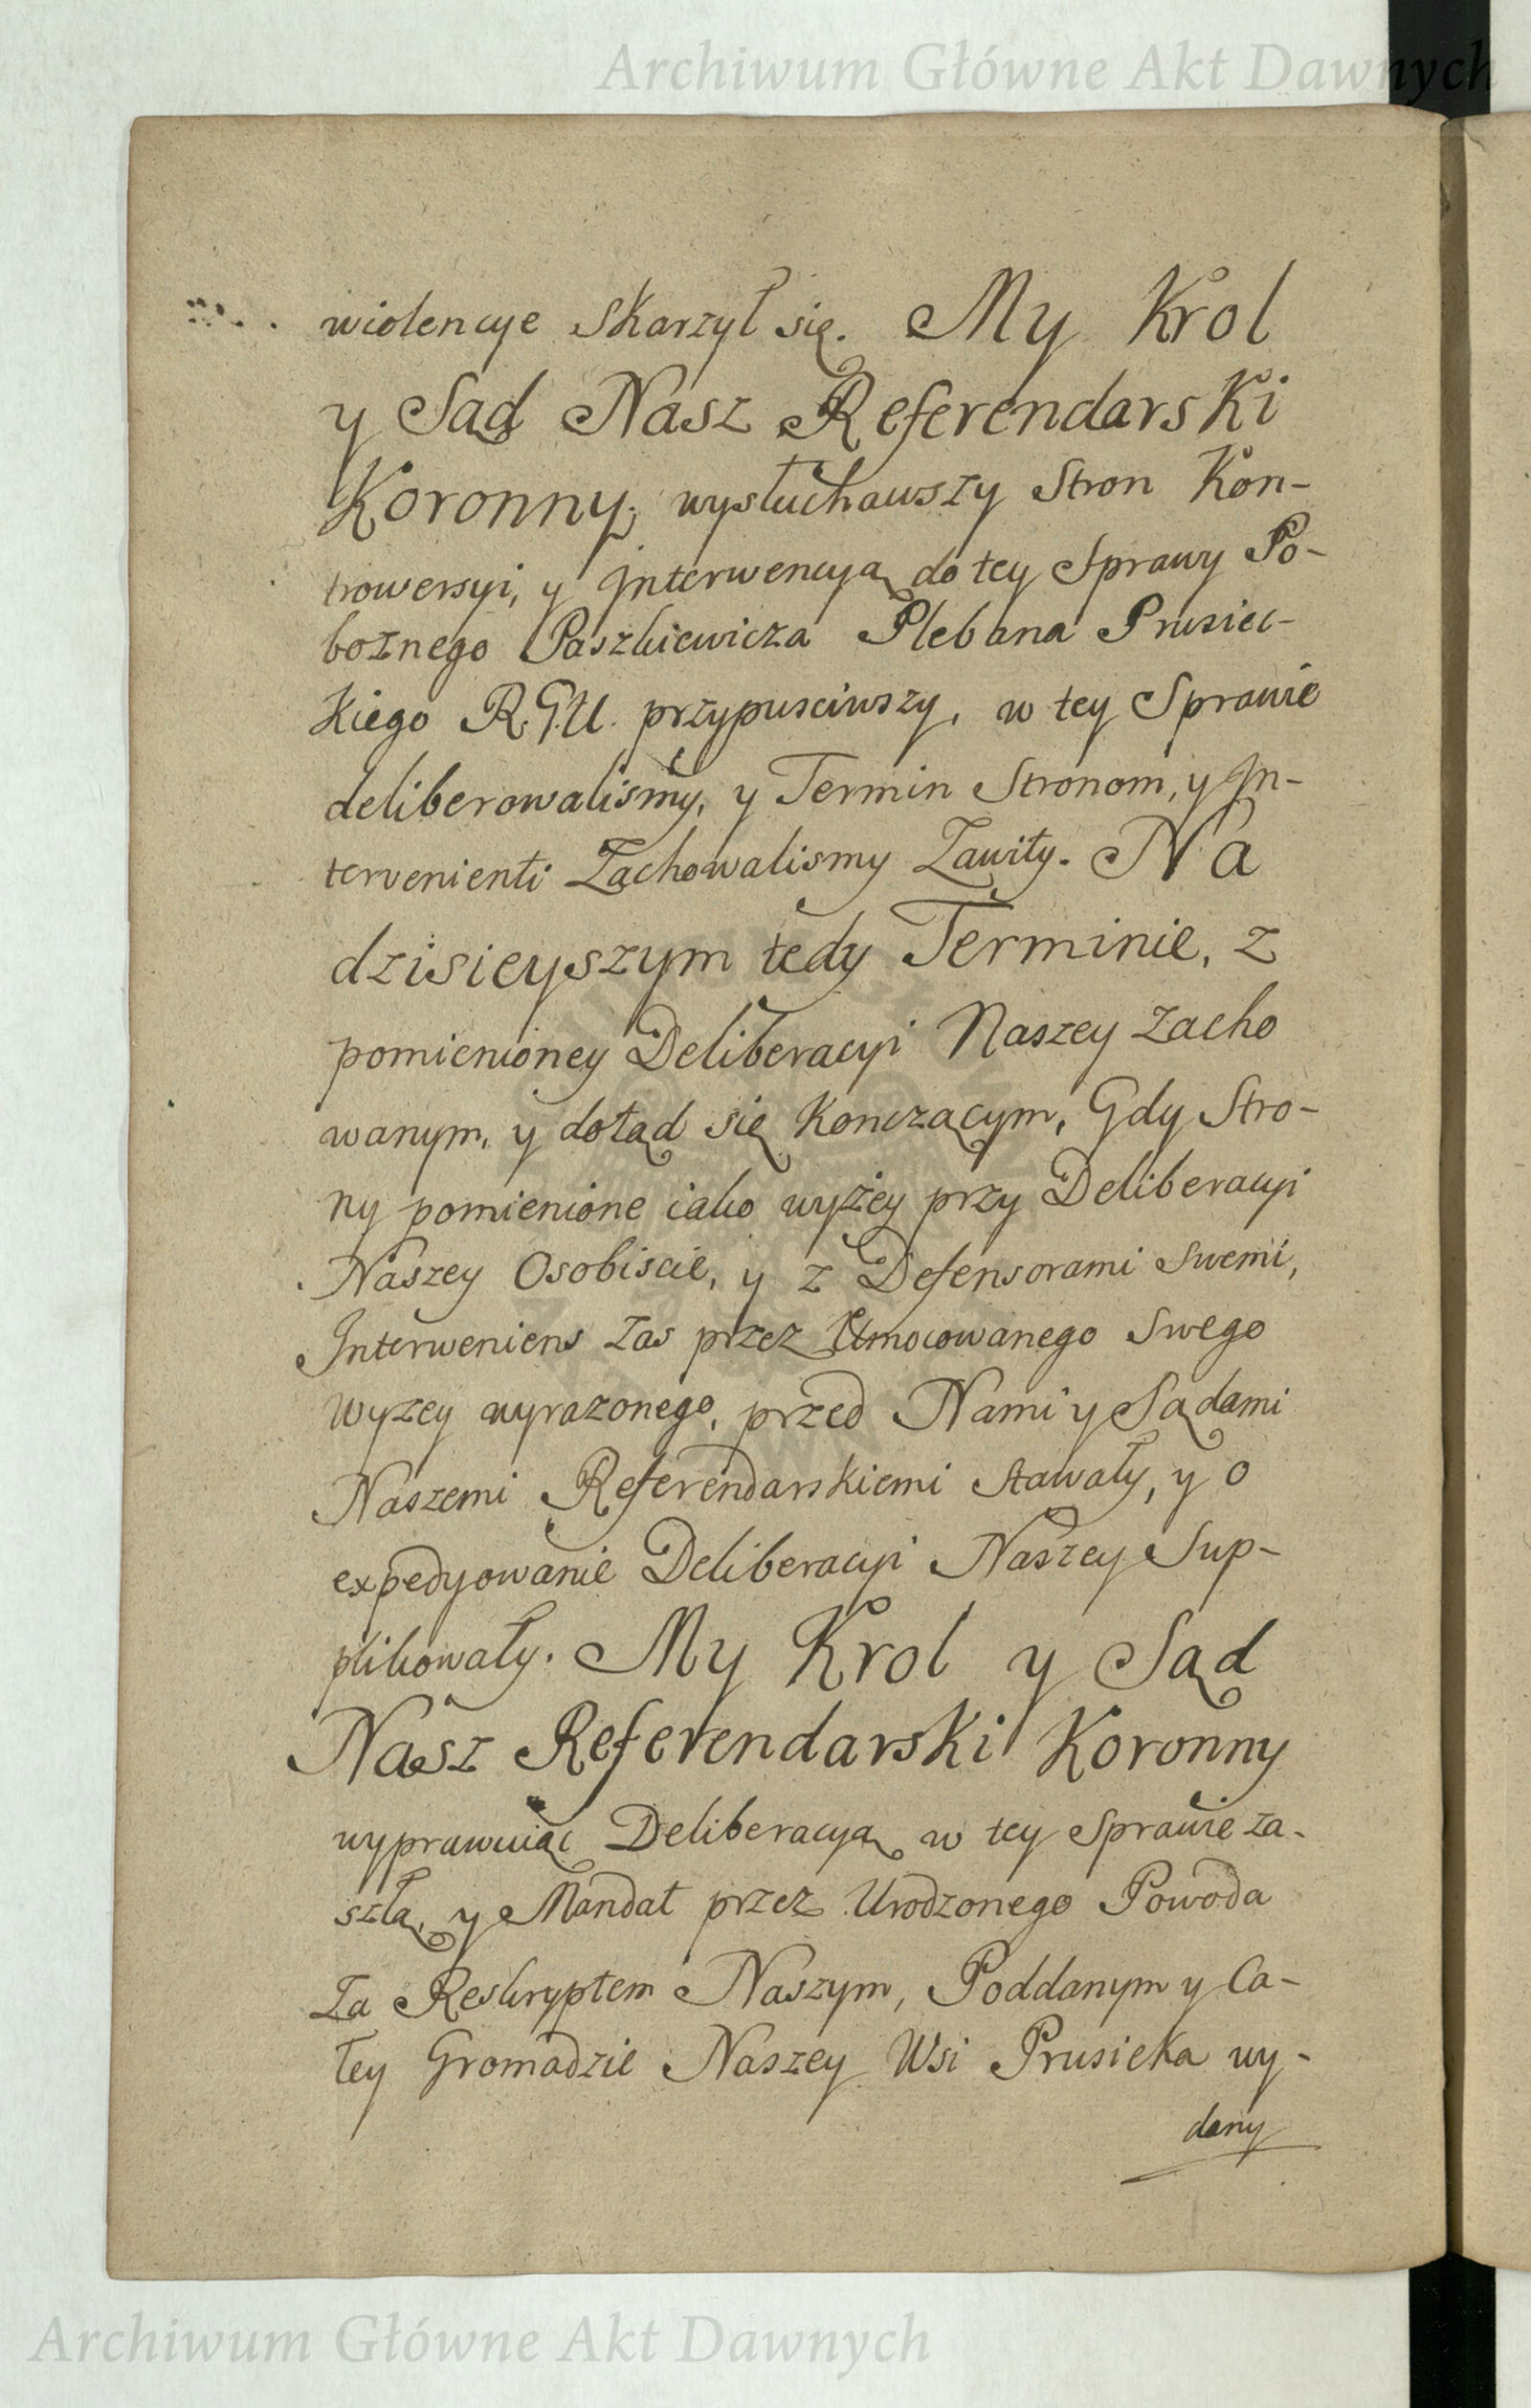 Archiwum Główne Akt Dawnych
wiolencye skarzył się. My Krol
y Sąd Nasz Referendarski
Koronny, wysłuchawszy Stron Kon-
trowersyi, y Interwencyą do tey Sprawy Po-
boznego Paszkiewicza Plebana Prusiec-
kiego R.G.U. przypusciwszy, w tey Sprawie
deliberowalismy, y Termin Stronom, y In-
tervenienti Zachowalismy Zawiły. Na
dzisieyszym tedy Terminie, z
pomienioney Deliberacyi Naszey zacho
wanym, y dotąd się konczącym, Gdy Stro-
ny pomienione iako wyżey przy Deliberacyi
Naszey Osobiscie, y z Defensorami Swemi,
Interweniens zas przez Umocowanego Swego
wyzey wyrazonego, przed Nami y Sądami
Naszemi Referendarskiemi stawały, y o
expedyowanie Deliberacyi Naszey Sup-
plikowały. My Krol y Sąd
Nasz Referendarski Koronny
wyprawuiąc Deliberacyą w tey Sprawie za-
szłą, y Mandat przez Urodzonego Powoda
Za Reskryptem Naszym, Poddanym y Ca-
łey Gromadzie Naszey Wsi Prusieka wy-
dany
Archiwum Główne Akt Dawnych